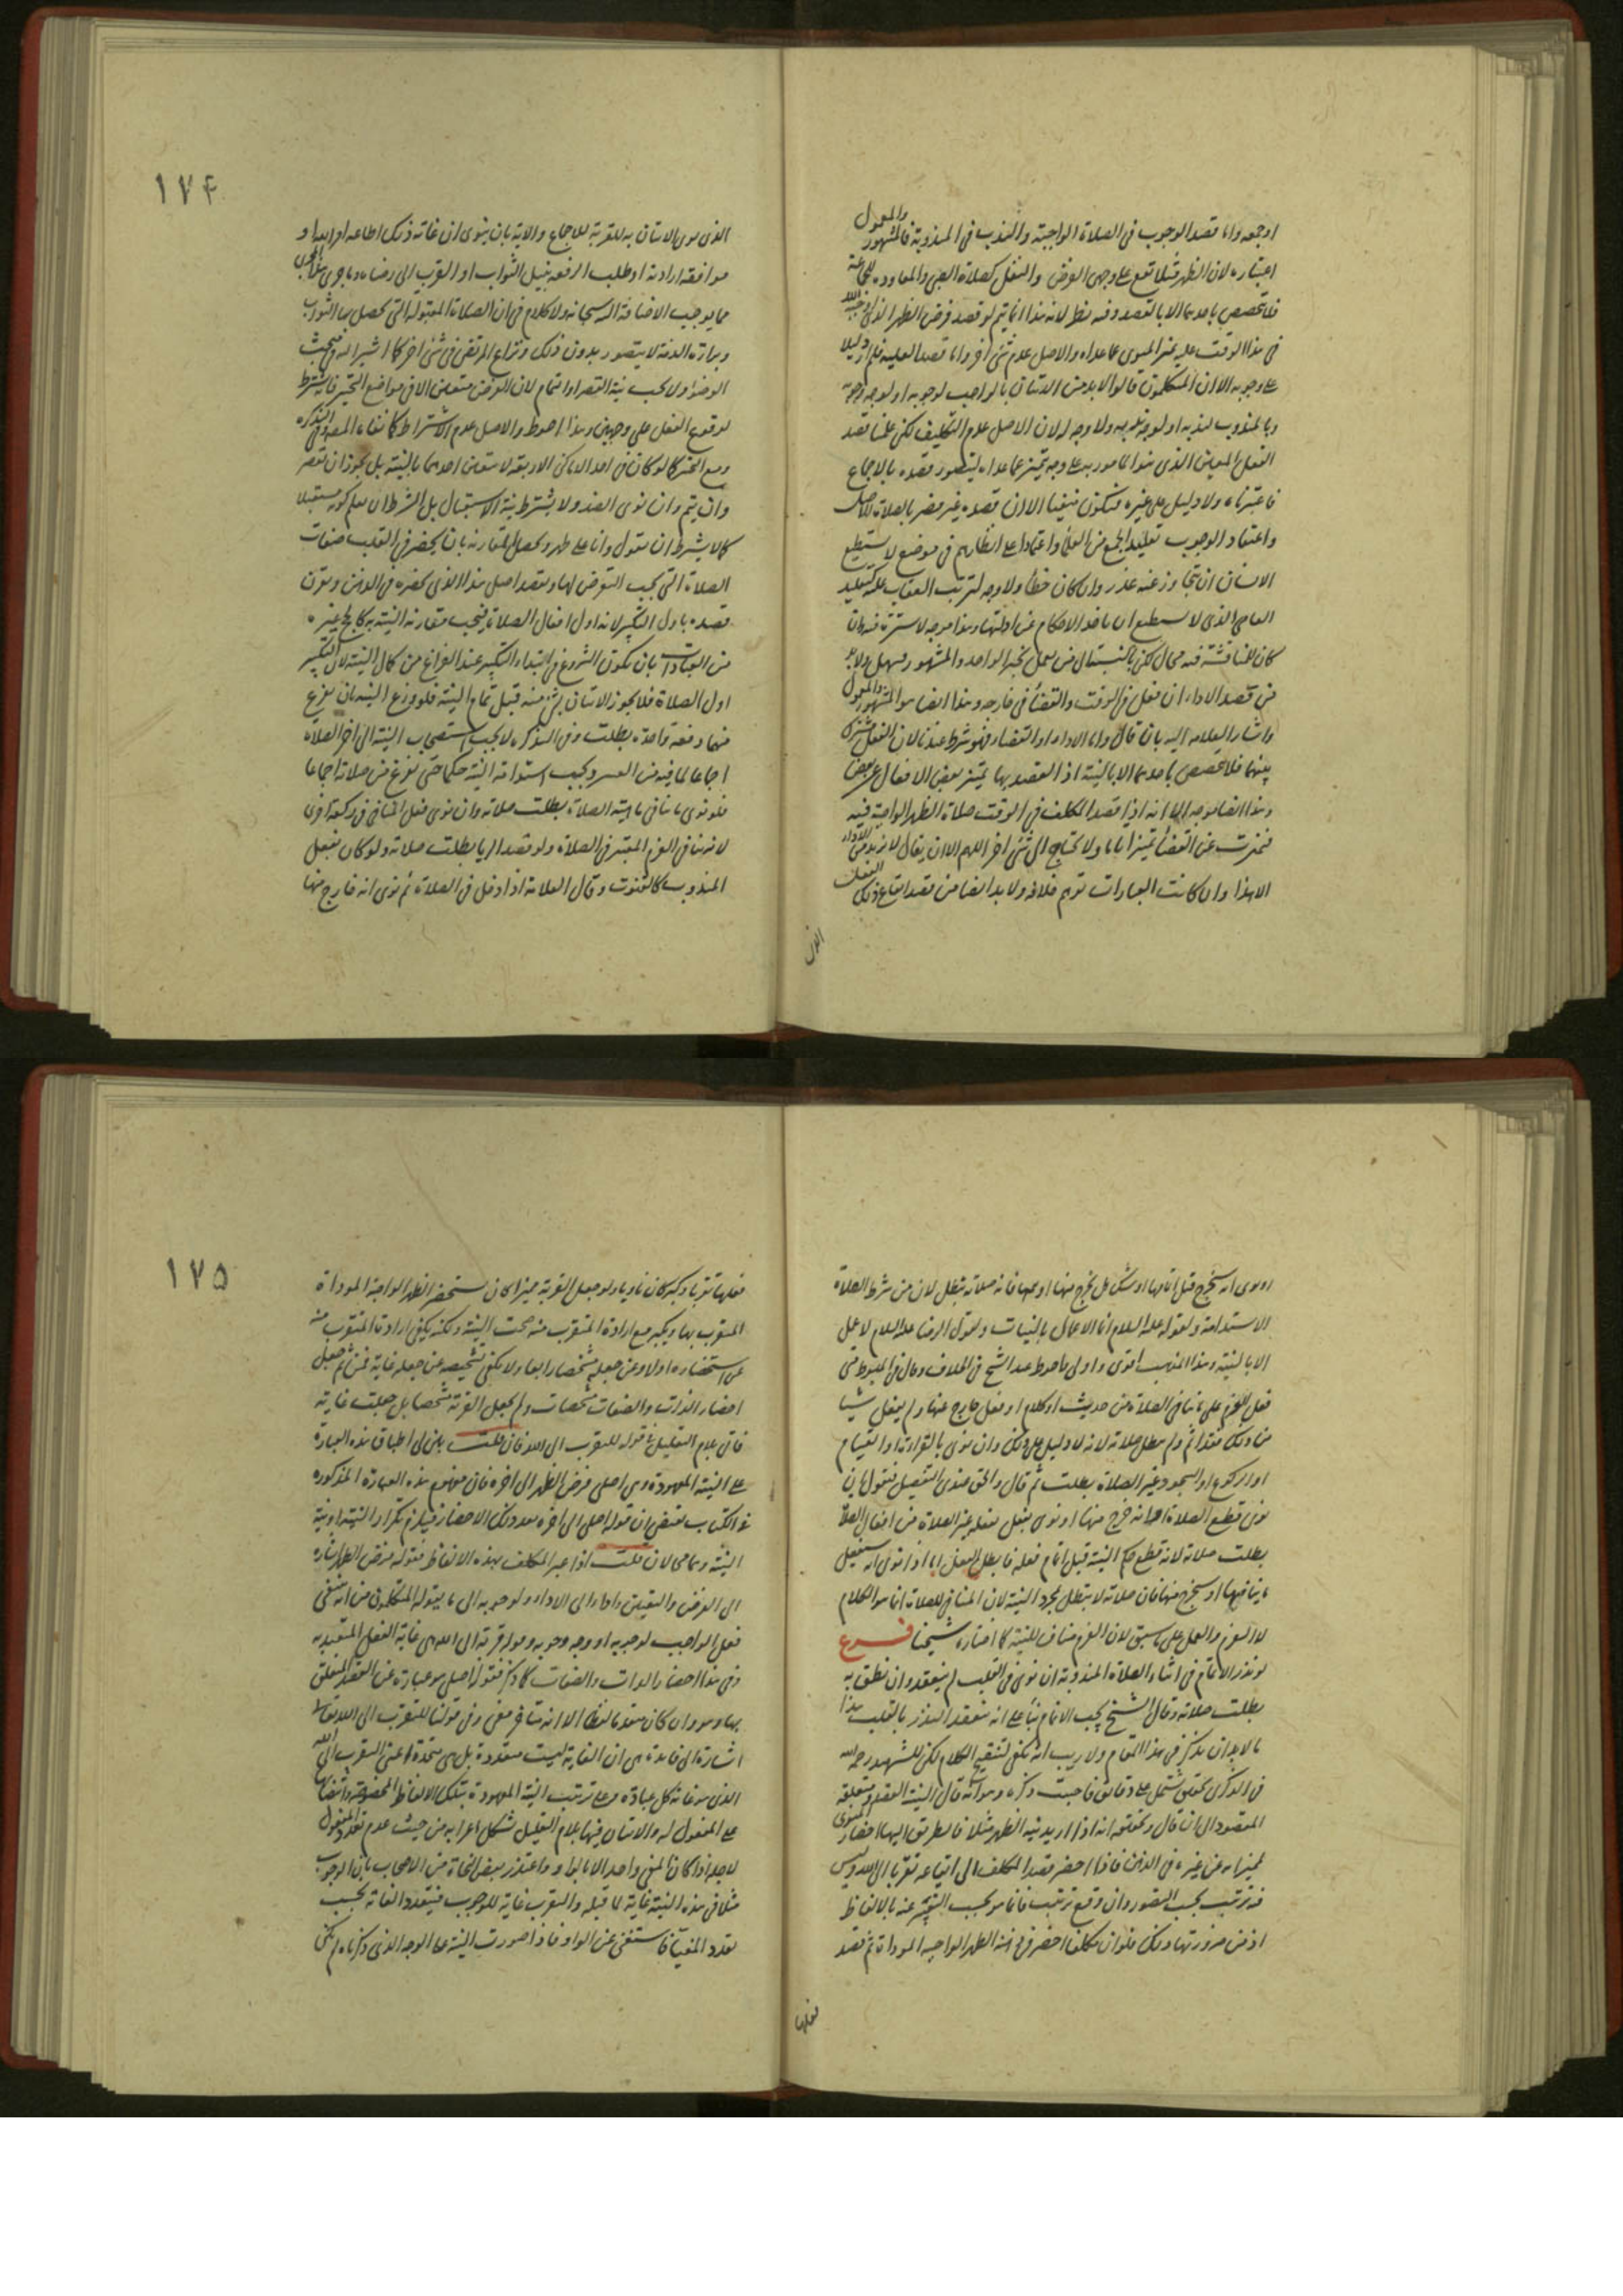 اوجهه واما قصد الوجوب في الصلاة الواجبة والندب في المندوبة فالمشهور والمعول
اعتباره لان الظهر مثلا تقع على وجهي الفرض والنفل كصلاة الصبي والمعاودة للجماعة
فلا تخصص باحدهما الا بالقصد وفيه نظر لانه هذا انما يتم لو قصد فرض الظهر الذي
في هذا الوقت عليه تميز المنوي عما عداه والاصل عدم شئ اخر واما قصد العلية فلم ار دليلا
على وجوبه الا ان المتكلمون قالوا لابد من الاتيان بالواجب لوجوبه او لوجه وجوبه
وبالمندوب لندبه او لوجه ندبه ولا وجه له لان الاصل عدم التكليف لكن علمنا قصد
الفعل المعين الذي هو المامور به على وجه يتميز عما عداه ليتصور قصده بالاجماع
فاعتبرناه ولا دليل على غيره فيكون منفيا الا ان قصده غير مضر بالصلاة
واعتقاد الوجوب تقليد الجمع من العلماء واعتمادا على انظارهم في موضع لا يستطيع
الانسان ان يتجاوز عنه عذر وان كان خطأ ولا وجه لترتب العقاب عليه كتقليد
العامي الذي لا يستطيع ان ياخذ الاحكام عن ادلتها وهذا موجه لا سترة فيه وان
كان للمناقشة فيه مجال لكن بالنسبة الى من يعمل بخبر الواحد والمشهور وسهل ولابد
من قصد الاداء ان فعل في الوقت والقضاء في خارجه وهذا ايضا هو المشهور والمعول
واشار العلامه اليه بان قال واما الاداء او القضاء فهو شرط عندنا لان الفعل مشترك
بينهما فلا تخصص باحدهما الا بالنية اذ القصد بها تميز بعض الافعال عن بعض
وهذا ايضا موجه الا انه اذا قصد المكلف في الوقت صلاة الظهر الواجبة فيه
تميزت عن القضاء تميزا تاما ولا تحتاج الى شئ اخر اللهم الا ان يقال لا نريد من الاداء
الا هذا وان كانت العبارات توهم خلافه ولابد ايضا من قصد ايقاع ذلك الفعل
الذي
١٧٤
الذي نوى الاتيان به للقربة للاجماع والاية بان ينوي ان غايته ذلك اطاعة امر الله او
موافقة ارادته او طلب الرفعة بنيل الثواب او القرب الى رضاه وما جرى هذا المجرى
مما يوجب الاضافة اليه سبحانه ولا كلام في ان الصلاة المقبولة التي تحصل بها الثواب
وبراءة الذمة لا يتصور بدون ذلك ونزاع المرتضى في شئ اخر كما اشير اليه في مبحث
الوضوء ولا يجب نية القصر او اتمام لان الفرض متعين الا في مواضع التخيير فانه يشترط
لوقوع الفعل على وجهين وهذا احوط والاصل عدم الاشتراط كما نفاه المصنف في التذكره
ومع التخير كما لو كان في احد الاماكن الاربعة لا يتعين احدهما بالنية بل يجوز ان يقصر
وان يتم وان نوى الضد ولا يشترط نية الاستقبال بل الشرط ان يعلم كونه مستقبلا
كما لا يشترط ان يقول وانا على طهر وتحصل المقارنه بان يحضر في القلب صفات
الصلاة التي يجب التعرض لها ويقصد اصل هذا الذي يحضره في الذهن ويقرن
قصده باول التكبير لانه اول افعال الصلاة فيجب مقارنة النية به كما في غيره
من العبادات بان يكون الشروع في ابتداء التكبير عند الفراغ من كمال النية لان التكبير
اول الصلاة فلا يجوز الاتيان بشئ منه قبل تمام النية فلو وزع النية بان يوزع
منهما دفعة واحدة بطلت وفي التذكره لا يجب استصحاب النية الى اخر الصلاة
اجماعا لما فيه من العسر ويجب استدامة النية حكما حتى يفرغ من صلاته اجماعا
فلو نوى ما ينافي ماهية الصلاة بطلت صلاته وان نوى فعل المنافي في ركعة اخرى
لانه ينافي الغرم المعتبر في الصلاة ولو قصد الريا بطلت صلاته ولو كان بفعل
المندوب كالقنوت وقال العلامة اذا دخل في الصلاة ثم نوى انه خارج منها
او نوى انه سيخرج قبل اتمامها او شك هل يخرج منها او يتمها فانه صلاته تبطل لان من شرط الصلاة
الاستدامة ولقوله عليه السلام انما الاعمال بالنيات ولقول الرضا عليه السلام لا عمل
الا بالنية وهذا المذهب اقوى واولى واحوط عند الشيخ في الخلاف وقال في المبسوط متى
فعل العزم على ما ينافي الصلاة من حديث او كلام او فعل خارج عنها ولم يفعل شيئا
من ذلك فقد اثم ولم يبطل صلاته لانه لا دليل على ذلك وان نوى بالقراءة او القيام
او الركوع او السجود غير الصلاة بطلت ثم قال والحق عندي التفصيل فنقول ان
نوى قطع الصلاة او انه خرج منها او نوى بفعل يفعله غير الصلاة من افعال الصلاة
بطلت صلاته لانه قطع حكم النية قبل اتمام فعله فابطل الفعل اما اذا نوى انه سيفعل
ما ينافيها او سيخرج منها فان صلاته لا تبطل بمجرد النية لان المنافي للصلاة انما هو الكلام
لا العزم والعمل على ما سبق لان العزم مناف للنية كما اختاره شيخنا فرع
لو نذر الاتمام في اثناء الصلاة المندوبة ان نوى في القلب لم ينعقد وان نطق به
بطلت صلاته وقال الشيخ يجب الاتمام بناء على انه ينعقد النذر بالقلب هذا
ما لابد ان يذكر في هذا المقام ولا ريب انه يكفي لتنقيح الكلام لكن للشهيد رحمه الله
في الذكرى تحقيق يشتمل على دقائق فاحببت ذكره وهو انه قال النية القصد ومتعلقه
المقصود الى ان قال وتحقيقه انه اذا اريد نية الظهر مثلا فالطريق اليها احضار المنوي
تميزا به عن غيره في الذهن فاذا احضر قصد المكلف الى ايقاعه تقربا الى الله وليس
فيه ترتيب بحسب التصور وان وقع ترتيب فانما هو بحسب التعبير عنه بالالفاظ
اذ من ضرورتها ذلك فلو ان مكلفا احضر في ذهنه الظهر الواجبة المؤداة ثم قصد
فعلها
١٧٥
فعلها تقربا وكبر كان ناويا ولو جعل القربة مميزا كان يستحضر الظهر الواجبة المؤداة
المتقرب بها ويكبر مع ارادة المتقرب منه صحت النية ولكنه يكفي ارادة المتقرب منه
عن استحضاره اولا وعن جعله مشخصا رابعا ولا يكفي تشخيصه عن جعله غاية فمن ثم جعل
احضار الذات والصفات مشخصات ولم يجعل القربة مشخصا بل جعلت غاية
فاتى بلام التعليل في قوله للتقرب الى الله فان قلت بين لي اطباق هذه العبارة
على النية المعهودة وهي اصلي فرض الظهر الى اخره فان مفهوم هذه العبارة المذكوره
في الكتاب تقتضي ان قوله اصلي الى اخره بعد ذلك الاحضار فيلزم تكرار النية او نية
النية وهما محالان قلت اذا عبر المكلف بهذه الالفاظ فقوله فرض الظهر اشاره
الى الفرض والتعيين واداء الى الاداء ولوجوبه الى ما يقوله المتكلمون من انه ينبغي
فعل الواجب لوجوبه او وجه وجوبه وقوله قربة الى الله هي غاية الفعل المتعبد به
وفي هذا احضار الذات والصفات كما ذكر فقوله اصلي هو عبارة عن القصد المتعلق
بها وهو وان كان متقدما لفظا الا انه متاخر معنى وفي قولنا للتقرب الى الله تعالى
اشارة الى فائدة هي ان الغاية ليست متعددة بل هي متحدة اعني التقرب الى الله
الذي هو غاية كل عبادة وعلى ترتيب النية المعهودة بتلك الالفاظ المخصوصة وانتصابها
على المفعول له والاتيان فيها بلام التعليل يشكل اعرابه من حيث عدم تعدد المفعول
لاجله اذا كان المعني واحد الا بالواو واعتذر بعض النحاة من الاصحاب بان الوجوب
مثلا في هذه النية غاية لما قبله والتقرب غاية للوجوب فيتعدد الغاية بحسب
تعدد المغيا فاستغنى عن الواو فاذا صورت النية على الوجه الذي ذكرناه لم يكن